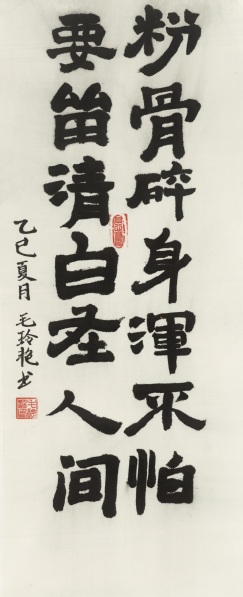 粉骨碎身渾不怕
要留清白在人间
乙巳夏月 毛玲艳书